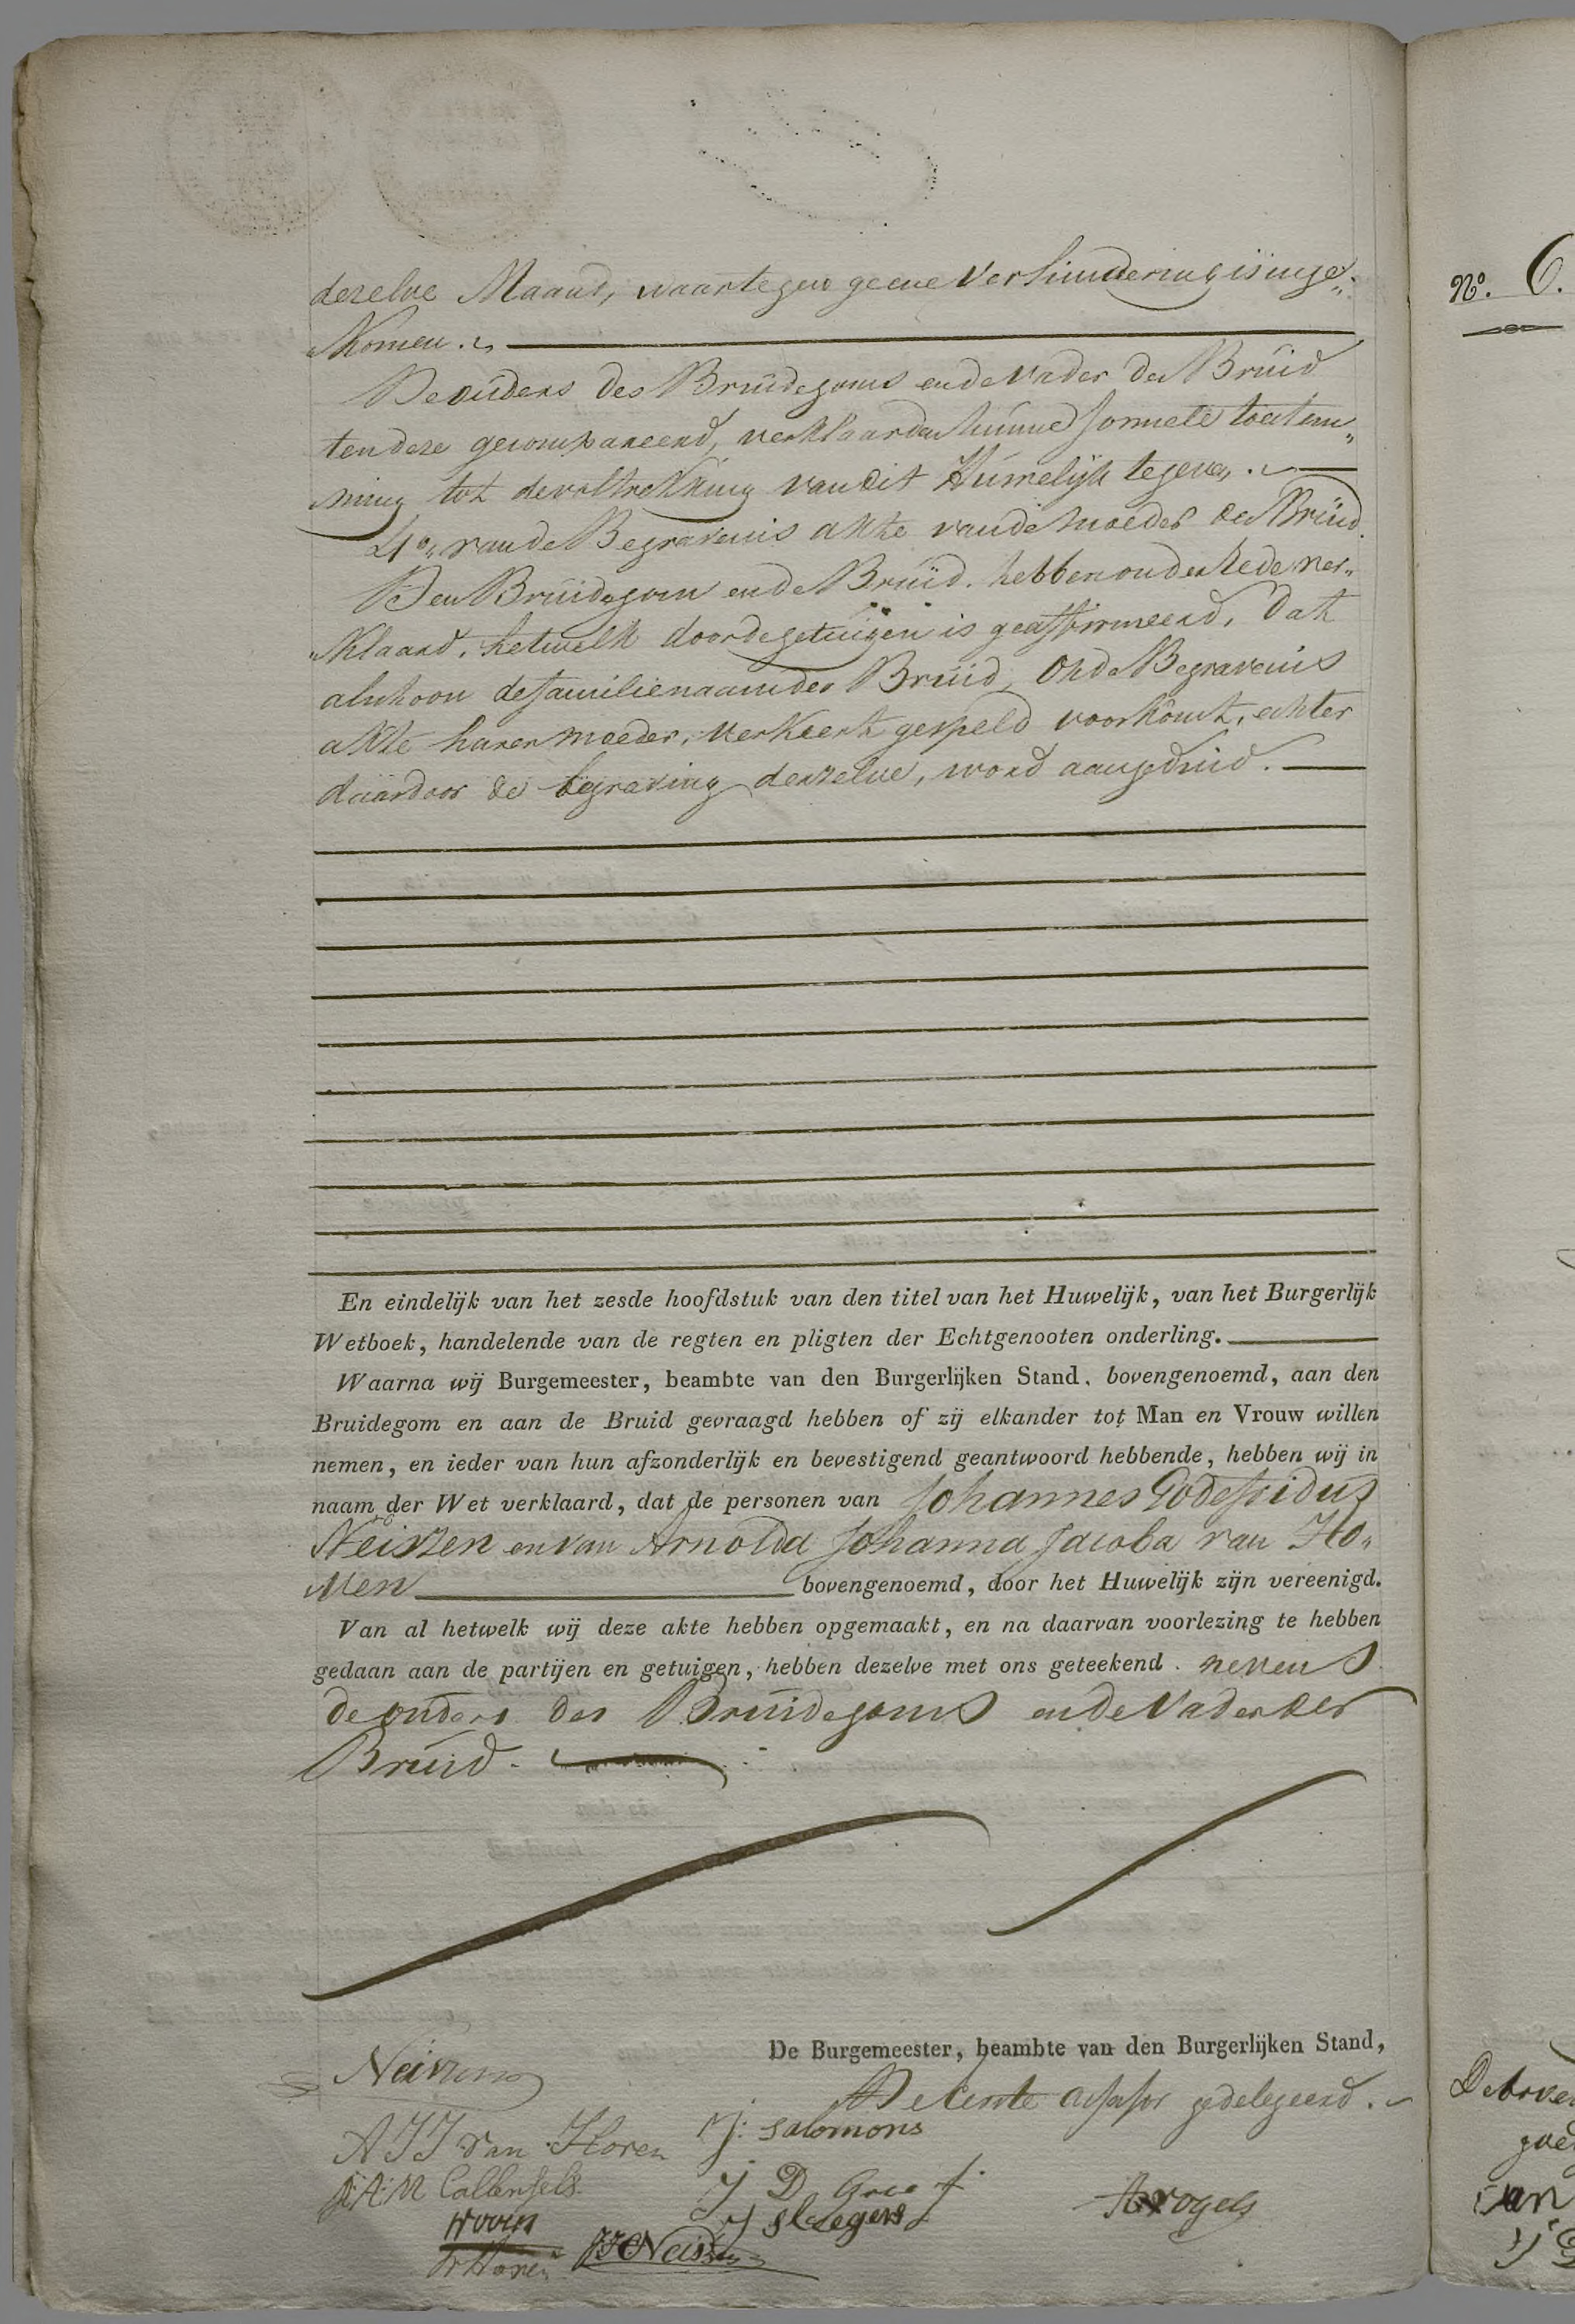 dezelve Maand, waartegen geene Verhindering is inge„
„komen.
De ouders des Bruidegoms en de Vader der Bruid
ten deze gecompareerd, verklaarden hunne formele toestem„
„ming tot de voltrekking van dit Huwelijk te geven.
4°„ van de Begravenis akte van de Moeder der Bruid.
Den Bruidegom en de Bruid hebben onder Eede ver„
„klaard, hetwelk door de getuigen is geaffirmeerd, dat
alschoon de familienaam der Bruid, op de Begravenis
akte harer moeder, verkeert gespeld voorkomt, echter
daardoor de begraving derzelve, word aangeduid.
En eindelijk van het zesde hoofdstuk van den titel van het Huwelijk, van het Burgerlijk
Wetboek, handelende van de regten en pligten der Echtgenooten onderling.
Waarna wij Burgemeester, beambte van den Burgerlijken Stand, bovengenoemd, aan den
Bruidegom en aan de Bruid gevraagd hebben of zij elkander tot Man en Vrouw willen
nemen, en ieder van hun afzonderlijk en bevestigend geantwoord hebbende, hebben wij in
naam der Wet verklaard, dat de personen van Johannes Godefridus
Neiszen en van Arnolda Johanna Jacoba van Ho„
„ven bovengenoemd, door het Huwelijk zijn vereenigd.
Van al hetwelk wij deze akte hebben opgemaakt, en na daarvan voorlezing te hebben
gedaan aan de partijen en getuigen, hebben dezelve met ons geteekend. nevens
de ouders des Bruidegoms en de Vader der
Bruid.
De Burgemeester, beambte van den Burgerlijken Stand,
De Eerste Assessor gedelegeerd.
Neiszen
AJJ van Hoven
J: Salomons
A: M Callenfels
J D Graaf
J Slaegers
JJC Neiszen
AVogels
N°. 6.